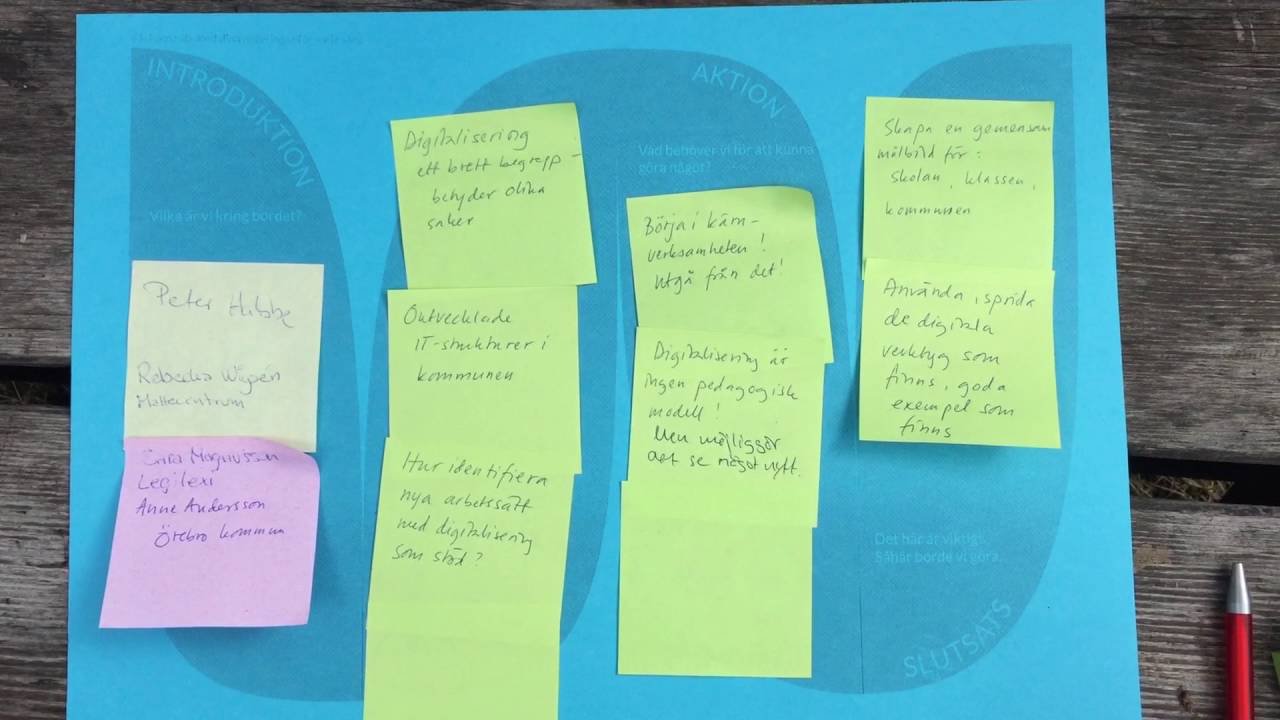 INTRODUKTION
Vilka är vi kring bordet?
Peter Hibbe
Rebecka
Mattecentrum
Magnusson
Legilexi
Anne Andersson
Örebro kommun
Digitalisering
ett brett begrepp -
betyder olika
saker
Outvecklade
IT-strukturer i
kommunen
Hur identifiera
nya arbetssätt
med digitalisering
som stöd?
AKTION
Vad behöver vi för att kunna
göra något?
Börja i kärn-
verksamheten!
Utgå från det!
Digitalisering är
ingen pedagogisk
modell!
Men möjliggör
att se något nytt.
Skapa en gemensam
målbild för:
skolan, klassen,
kommunen
Använda, sprida
de digitala
verktyg som
finns, goda
exempel som
finns
Det här är viktigt.
Såhär borde vi göra.
SLUTSATS